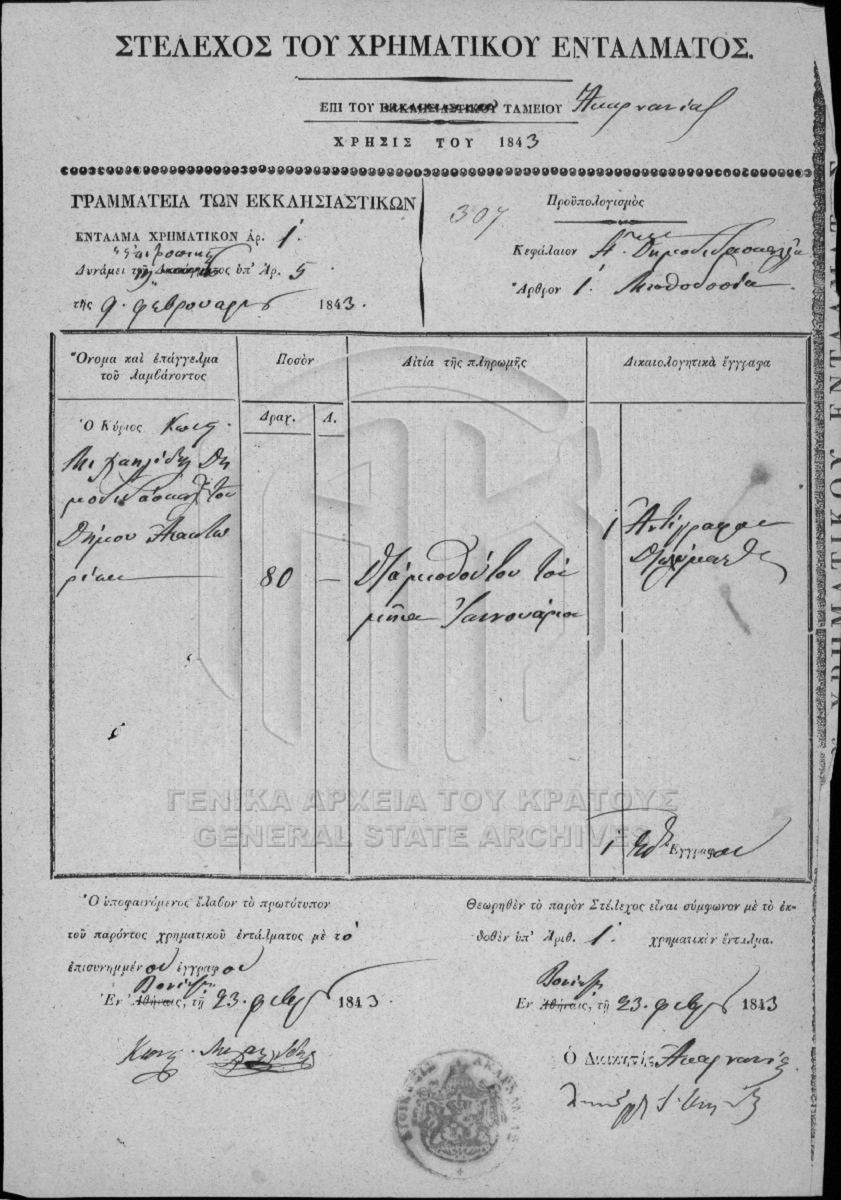 ΣΤΕΛΕΧΟΣ ΤΟΥ ΧΡΗΜΑΤΙΚΟΥ ΕΝΤΑΛΜΑΤΟΣ.
ΕΠΙ ΤΟΥ ΕΚΚΛΗΣΙΑΣΤΙΚΟΥ ΤΑΜΕΙΟΥ Ἀκαρνανίας
ΧΡΗΣΙΣ ΤΟΥ 1843
ΓΡΑΜΜΑΤΕΙΑ ΤΩΝ ΕΚΚΛΗΣΙΑΣΤΙΚΩΝ
ΕΝΤΑΛΜΑ ΧΡΗΜΑΤΙΚΟΝ Ἀρ. 1.
Δυνάμει τῆς ὑπ' Ἀρ. 5
τῆς 9. φεβρουαρίου 1843.
307
Προϋπολογισμὸς
Κεφάλαιον Δημοδιδασκαλεῖα
Ἄρθρον 1. Μισθοδοσία
Ὄνομα καὶ ἐπάγγελμα τοῦ λαμβάνοντος
Ποσὸν
Αἰτία τῆς πληρωμῆς
Δικαιολογητικὰ ἔγγραφα
Δραχ.
Λ.
Ὁ Κύριος Κωνστ.
Μιχαηλίδης Δη
μοδιδάσκαλος τοῦ
Δήμου Ἀνακτο
ρίων
80 —
Διὰ μισθόν του τοῦ
μηνὸς Ἰαννουάριου
1 Ἀντίγραφον
1 Ἔγγραφον
ΓΕΝΙΚΑ ΑΡΧΕΙΑ ΤΟΥ ΚΡΑΤΟΥΣ
GENERAL STATE ARCHIVES
Ὁ ὑποφαινόμενος ἔλαβον τὸ πρωτότυπον
τοῦ παρόντος χρηματικοῦ ἐντάλματος μὲ τὸ
ἐπισυνημμένον ἔγγραφον
Βονίτσῃ
Ἐν Ἀθήναις, τῇ 23. φεβρ 1843
Κωνστ. Μιχαηλίδης
Θεωρηθὲν τὸ παρὸν Στέλεχος εἶναι σύμφωνον μὲ τὸ ἐκ-
δοθὲν ὑπ' Ἀριθ. 1. χρηματικὸν ἔνταλμα.
Βονίτσῃ
Ἐν Ἀθήναις, τῇ 23. φεβρ 1843
Ὁ Διοικητὴς Ἀκαρνανίας
ΔΙΟΙΚΗΣΙΣ ΑΚΑΡΝΑΝΙΑΣ